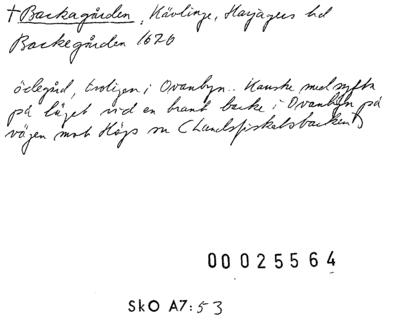 † Backagården, Kävlinge, Harjagers hd
Backegården 1626
ödegård, troligen i Ovanbyn. Kanske med syfte
på läget vid en brant backe i Ovanbyn på
vägen mot Högs sn (Landsfiskalsbacken)
00025564
SkO A7:53